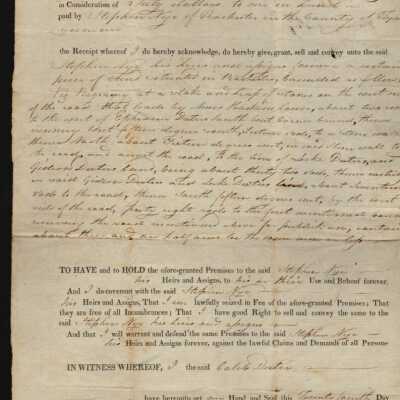 in Consideration of Sixty dollars to me in hand
paid by Stephen Nye of Rochester in the County of
the Receipt whereof I do hereby acknowledge, do hereby give, grant, sell and convey unto the said
Stephen Nye his heirs and assigns forever a certain
piece of land situated in Rochester, bounded as follows
Beginning at a stake and heap of stones on the west side
of the road that leads by house, about two rods
to the west of Ephraim Dexters South west corner bound, thence
running West fifteen degrees north, sixteen rods, to a stone wall
thence North about fifteen degrees west, in said Stone wall to
the road, and across the road, to the line of Luke Dexter, and
Gideon Dexters land, being about thirty two rods, thence
in said Gideon Dexters and Luke Dexters land, about seventeen
rods to the road, thence South fifteen degrees east, by the west
side of the road, forty eight rods to the first mentioned corner
the road mentioned above for publick use,
about three and one half acres be the same more or less
TO HAVE and to HOLD the afore-granted Premises to the said Stephen Nye
his Heirs and Assigns, to his or their Use and Behoof forever,
And I do covenant with the said Stephen Nye
his Heirs and Assigns, That I am lawfully seized in Fee of the afore-granted Premises; That
they are free of all Incumbrances; That I have good Right to sell and convey the same to the
said Stephen Nye his heirs and assigns
And that I will warrant and defend the same Premises to the said Stephen Nye
his Heirs and Assigns forever, against the lawful Claims and Demands of all Persons
IN WITNESS WHEREOF, I the said Caleb Dexter
have hereunto set my Hand and Seal this Twenty fourth Day